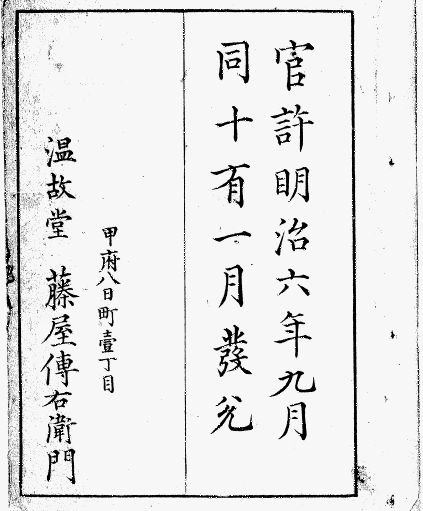 官許明治六年九月
同十有一月發兌
甲府八日町壹丁目
温故堂 藤屋傳右衛門